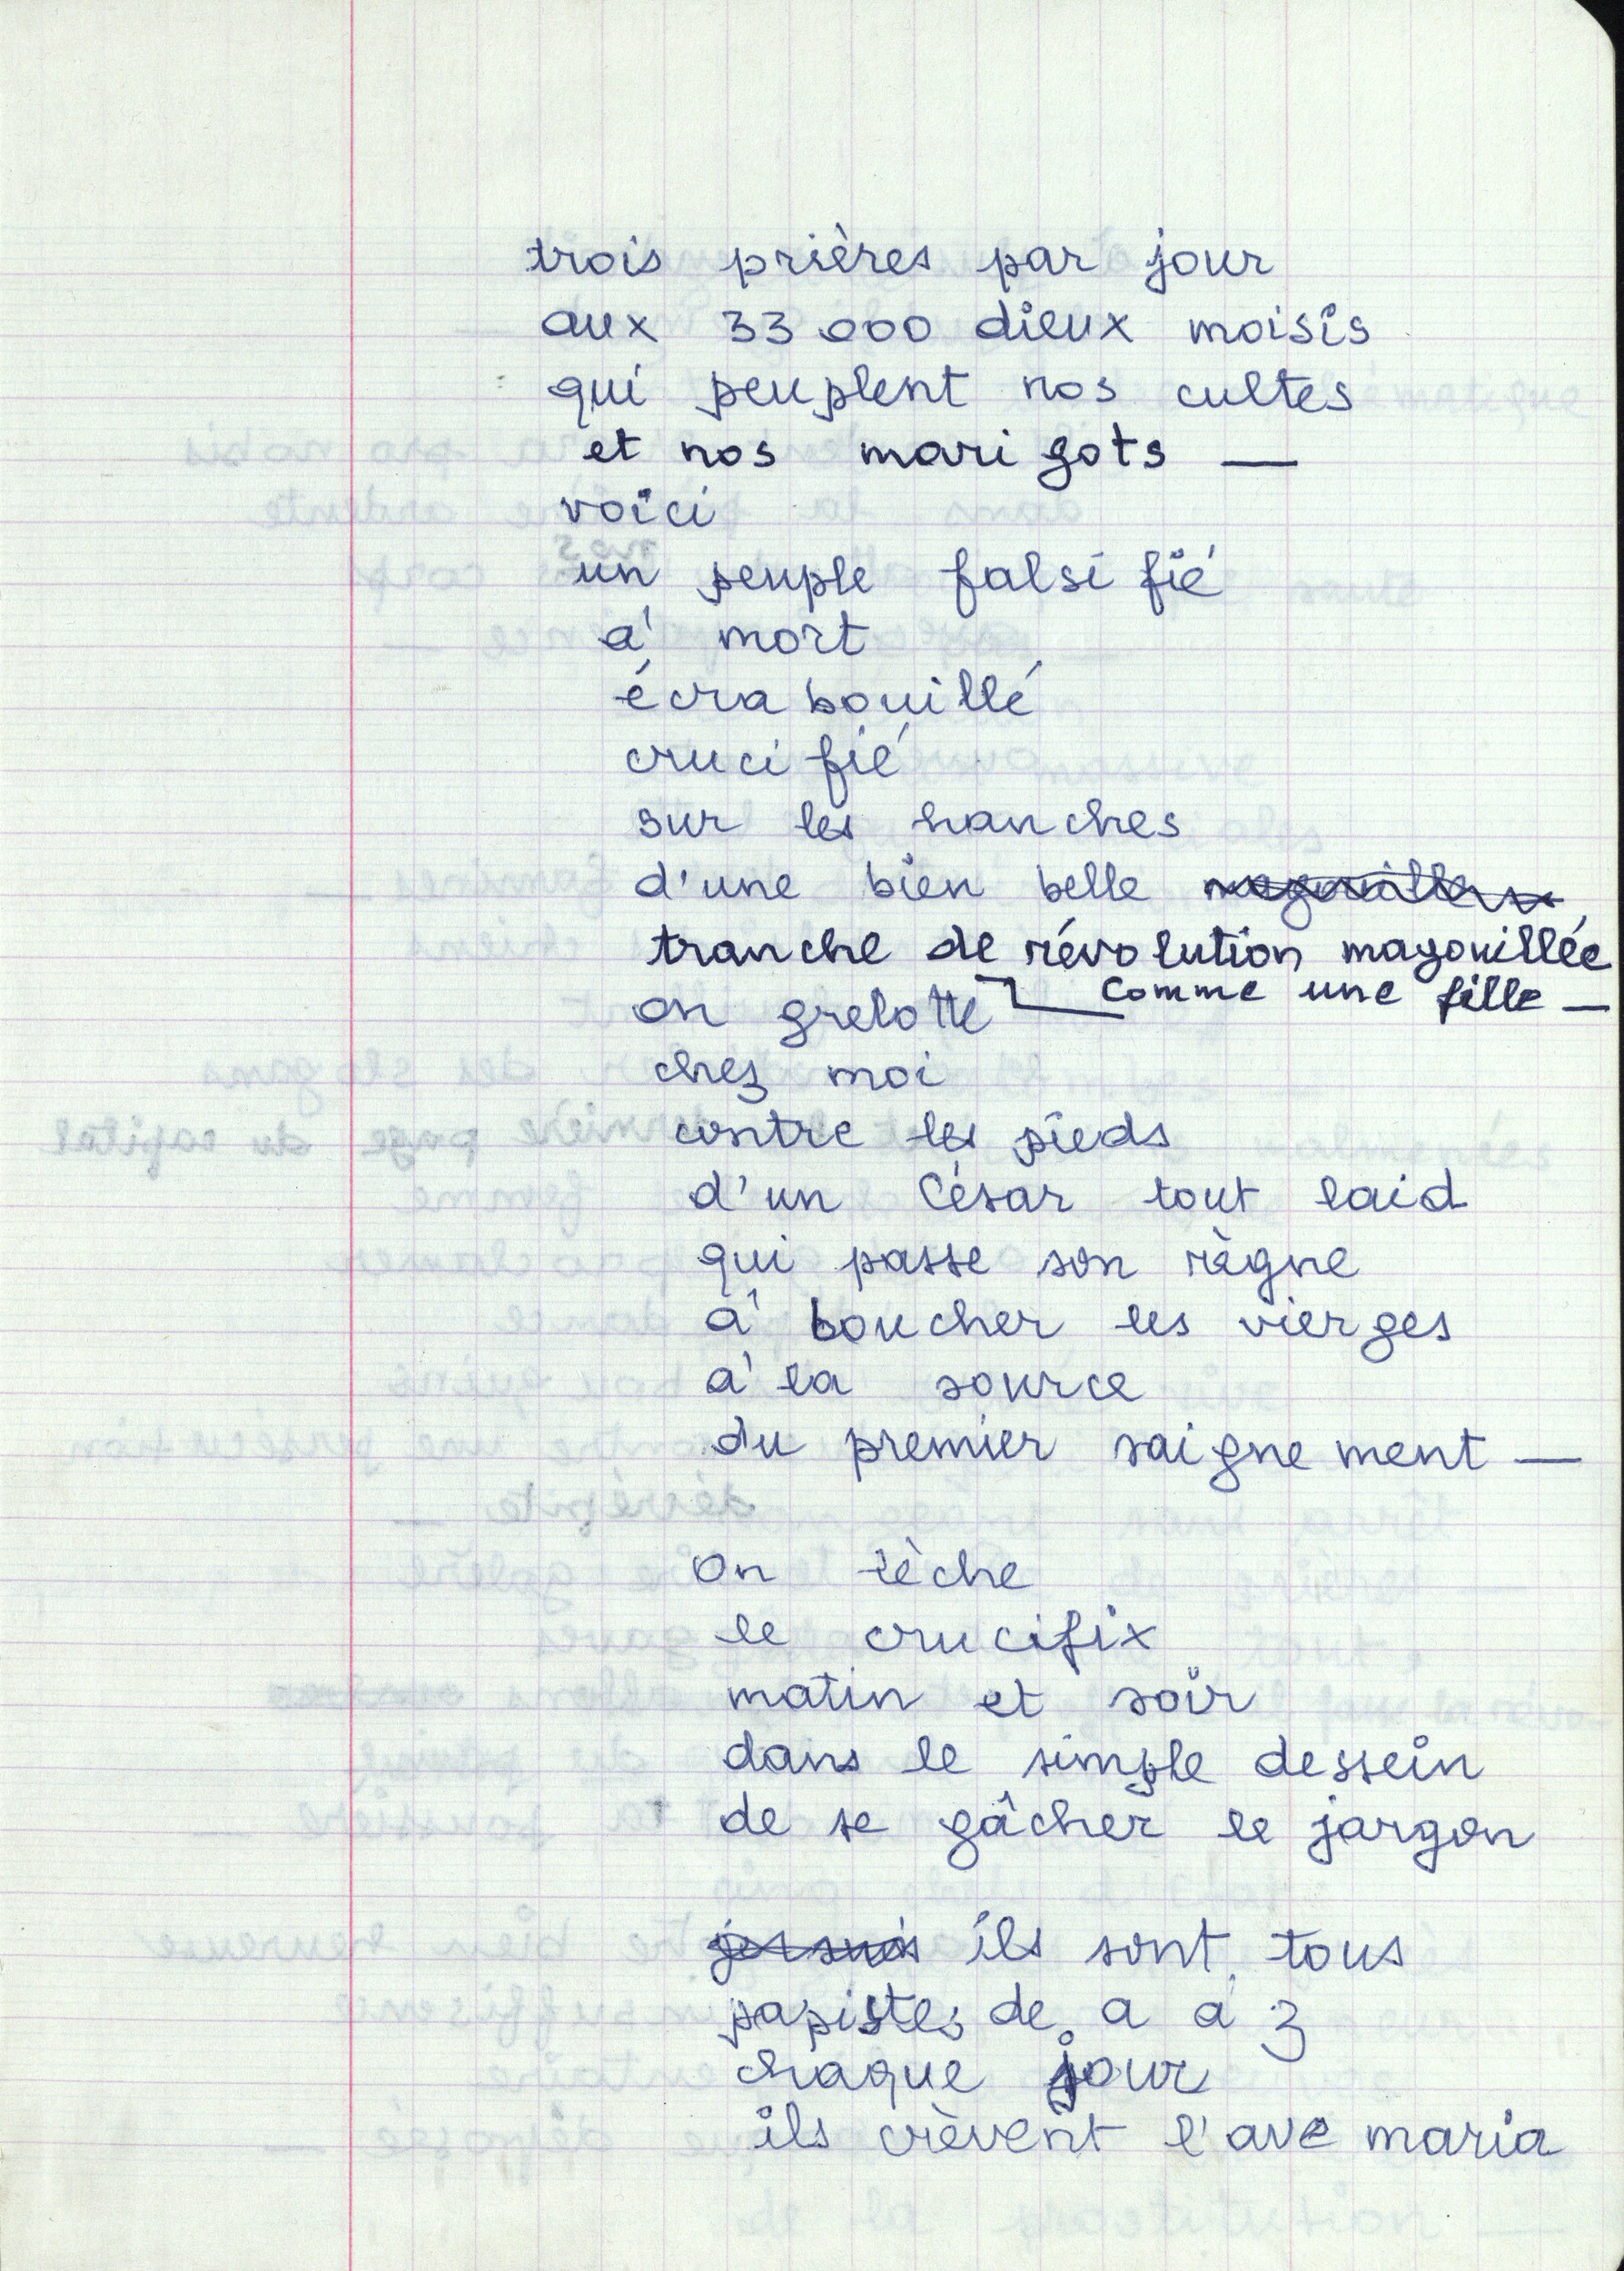 trois prières par jour
aux 33 000 dieux moisis
qui peuplent nos cultes
et nos marigots —
voici
un peuple falsifié
à mort
écrabouillé
crucifié
sur les hanches
d'une bien belle
tranche de révolution magouillée
on grelotte comme une fille —
chez moi
contre les pieds
d'un César tout laid
qui passe son règne
à boucher les vierges
à la source
du premier saignement —
on lèche
le crucifix
matin et soir
dans le simple dessein
de se gâcher le jargon
ils sont tous
papistes de a à z
chaque jour
ils crèvent l'ave maria